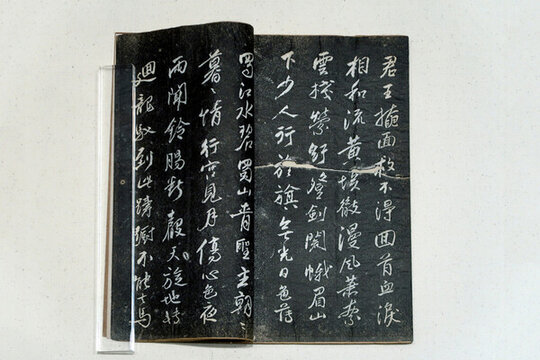 君王掩面救不得回首血淚
相和流黃埃散漫風蕭索
雲棧縈紆登劍閣峨眉山
下少人行旌旗無光日色薄
蜀江水碧蜀山青聖主朝〻
暮〻情行宮見月傷心色夜
雨聞鈴腸斷聲天旋地轉
迴龍馭到此躊躇不能去馬